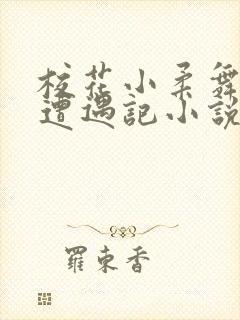 校花小柔舞
遭遇記小說
羅東香